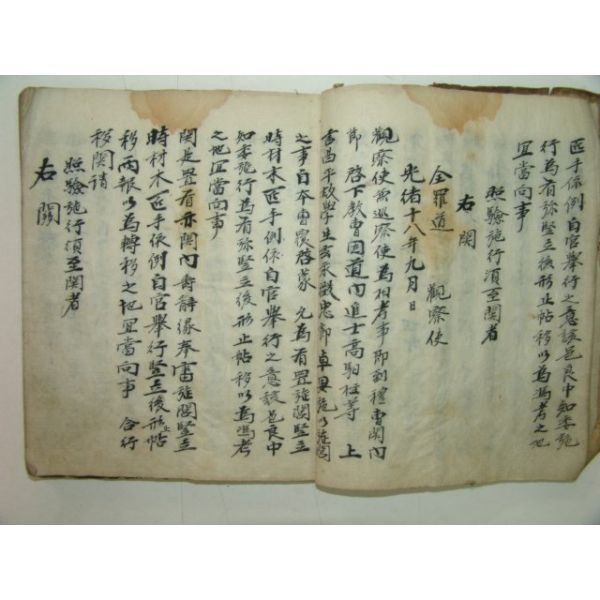 匹手依例自官擧行之意該邑良中知委施
行爲有弥竪立後形止帖移以爲憑考之地
宜當向事
照驗施行須至關者
右關
全羅道 觀察使
光緖十八年九月日
觀察使兼巡察使爲相考事卽到禮曺關內
節 啓下敎曺因道內進士高 等 上
言昌平故學生 忠卽卓異 以旌閭
之事自本曺覆啓蒙 允爲有置旌閭竪立
時材木匹手例依自官擧行之意該邑良中
知委施行爲有弥竪立後形止帖移以爲憑考
之地宜當向事
關是置有亦關內 奉審旌閭竪立
時材木匹手依例自官擧行竪立後形止帖
移而報以爲轉移之地宜當向事 合行
移關請
照驗施行須至關者
右關